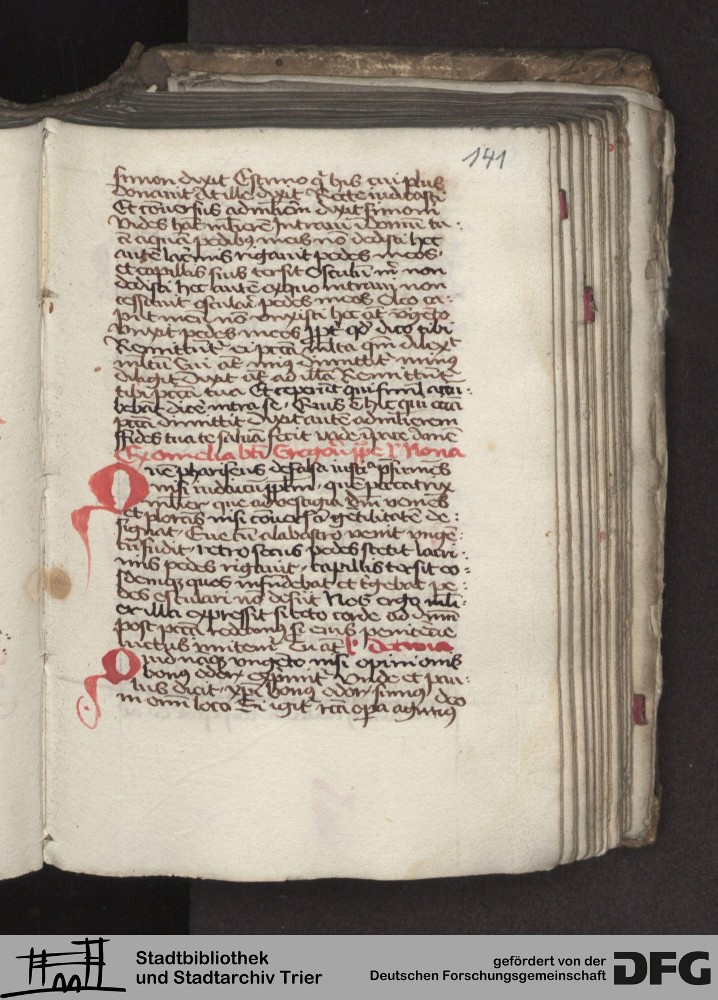 141
Simon dixit Estimo q his cui plus
donauit At ille dixit Recte iudicasti
Et conversus ad mlierem dixit simoni
Vides hac mlierē Intraui ī domū tu:
ā aquā pedibus meis nō dedisti hec
autē lacrimis rigauit pedes meos
et capillis suis tersit Osculū m non
dedisti hec autē ex quo intrauit non
cessauit osculari pedes meos Oleo ca:
put meū nō vnxisti hec at vngēto
vnxit pedes meos ppt qd dico tibi
Remittunt ei pcca multa qm dilexit
multū Cui at min9 dimittit min9
diligit Dixit at ad illā Remittunt
tibi pcca tua Et ceperūt qui simul accu:
bebāt dicē intra se Quis ē hic qui eciā
pcca dimittit dixit autē ad mlierem
ffides tua te saluā fecit vade ī pace
Ex omelia bti Gregorii ppe l nona
Que phariseus de falsa iusti psumēs
nisi iudaicū pplm que peccatrix
mlier que ad vestigia dni veniēs
et plorās nisi conuersā gētilitatē de:
signat Que cū alabastro venit vngē:
tū fudit retro secus pedes stetit lacri:
mis pedes rigauit capillis tersit eo:
sdemq3 quos infūdebat et tergebat pe:
des osculari nō desiit Nos ergo mli:
er illa expressit si toto corde ad dnm
post pcca redeam9 si eius penitēcie
luctus imitem Tu at l decima
Quid naq3 vngēto nisi opinionis
bonus odor exprimit Unde et pau:
lus dicit xpi bonus odor sumus deo
in omi loco Si igit rcā opa agimus
Stadtbibliothek
und Stadtarchiv Trier
gefördert von der
Deutschen Forschungsgemeinschaft
DFG